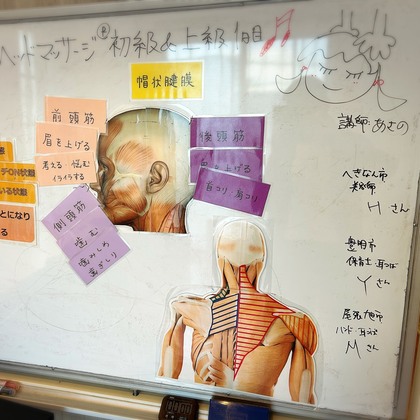 ヘッドマッサージ®初級&上級1日目
帽状腱膜
前頭筋
眉を上げる
考える・悩む
イライラする
後頭筋
眉を上げる
首コリ 肩コリ
側頭筋
歯む
噛みしめ
歯ぎしり
ON状態
いる状態
とになり
る
講師:あさの
へきなん市
Hさん
豊明市
保育士 耳つぼ
Yさん
尾張旭市
ハンド・耳つぼ
Mさん